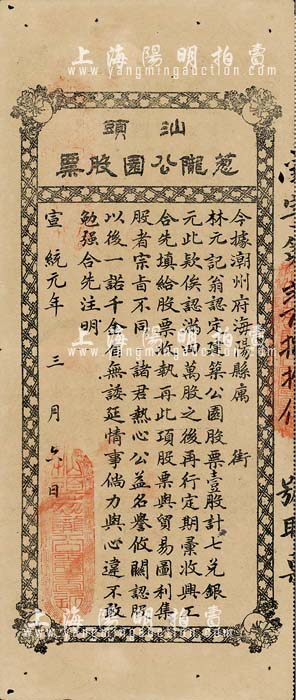 上海陽明拍賣
www.yangmingauction.com
汕頭
葱隴公園股票
今據潮州府海陽縣屬 街
林元記翁認定建築公園股票壹股計七兌銀
元此欵俟認滿四萬股之後再行定期彙收興工
合先填給股票收執再此項股票與貿易圖利集
股者宗旨不同 諸君熱心公益名譽攸關認股
以後一諾千金自無諉延情事倘力與心違不敢
勉强合先注明
宣統元年 三 月 六 日
號股票
上海陽明拍賣
www.yangmingauction.com